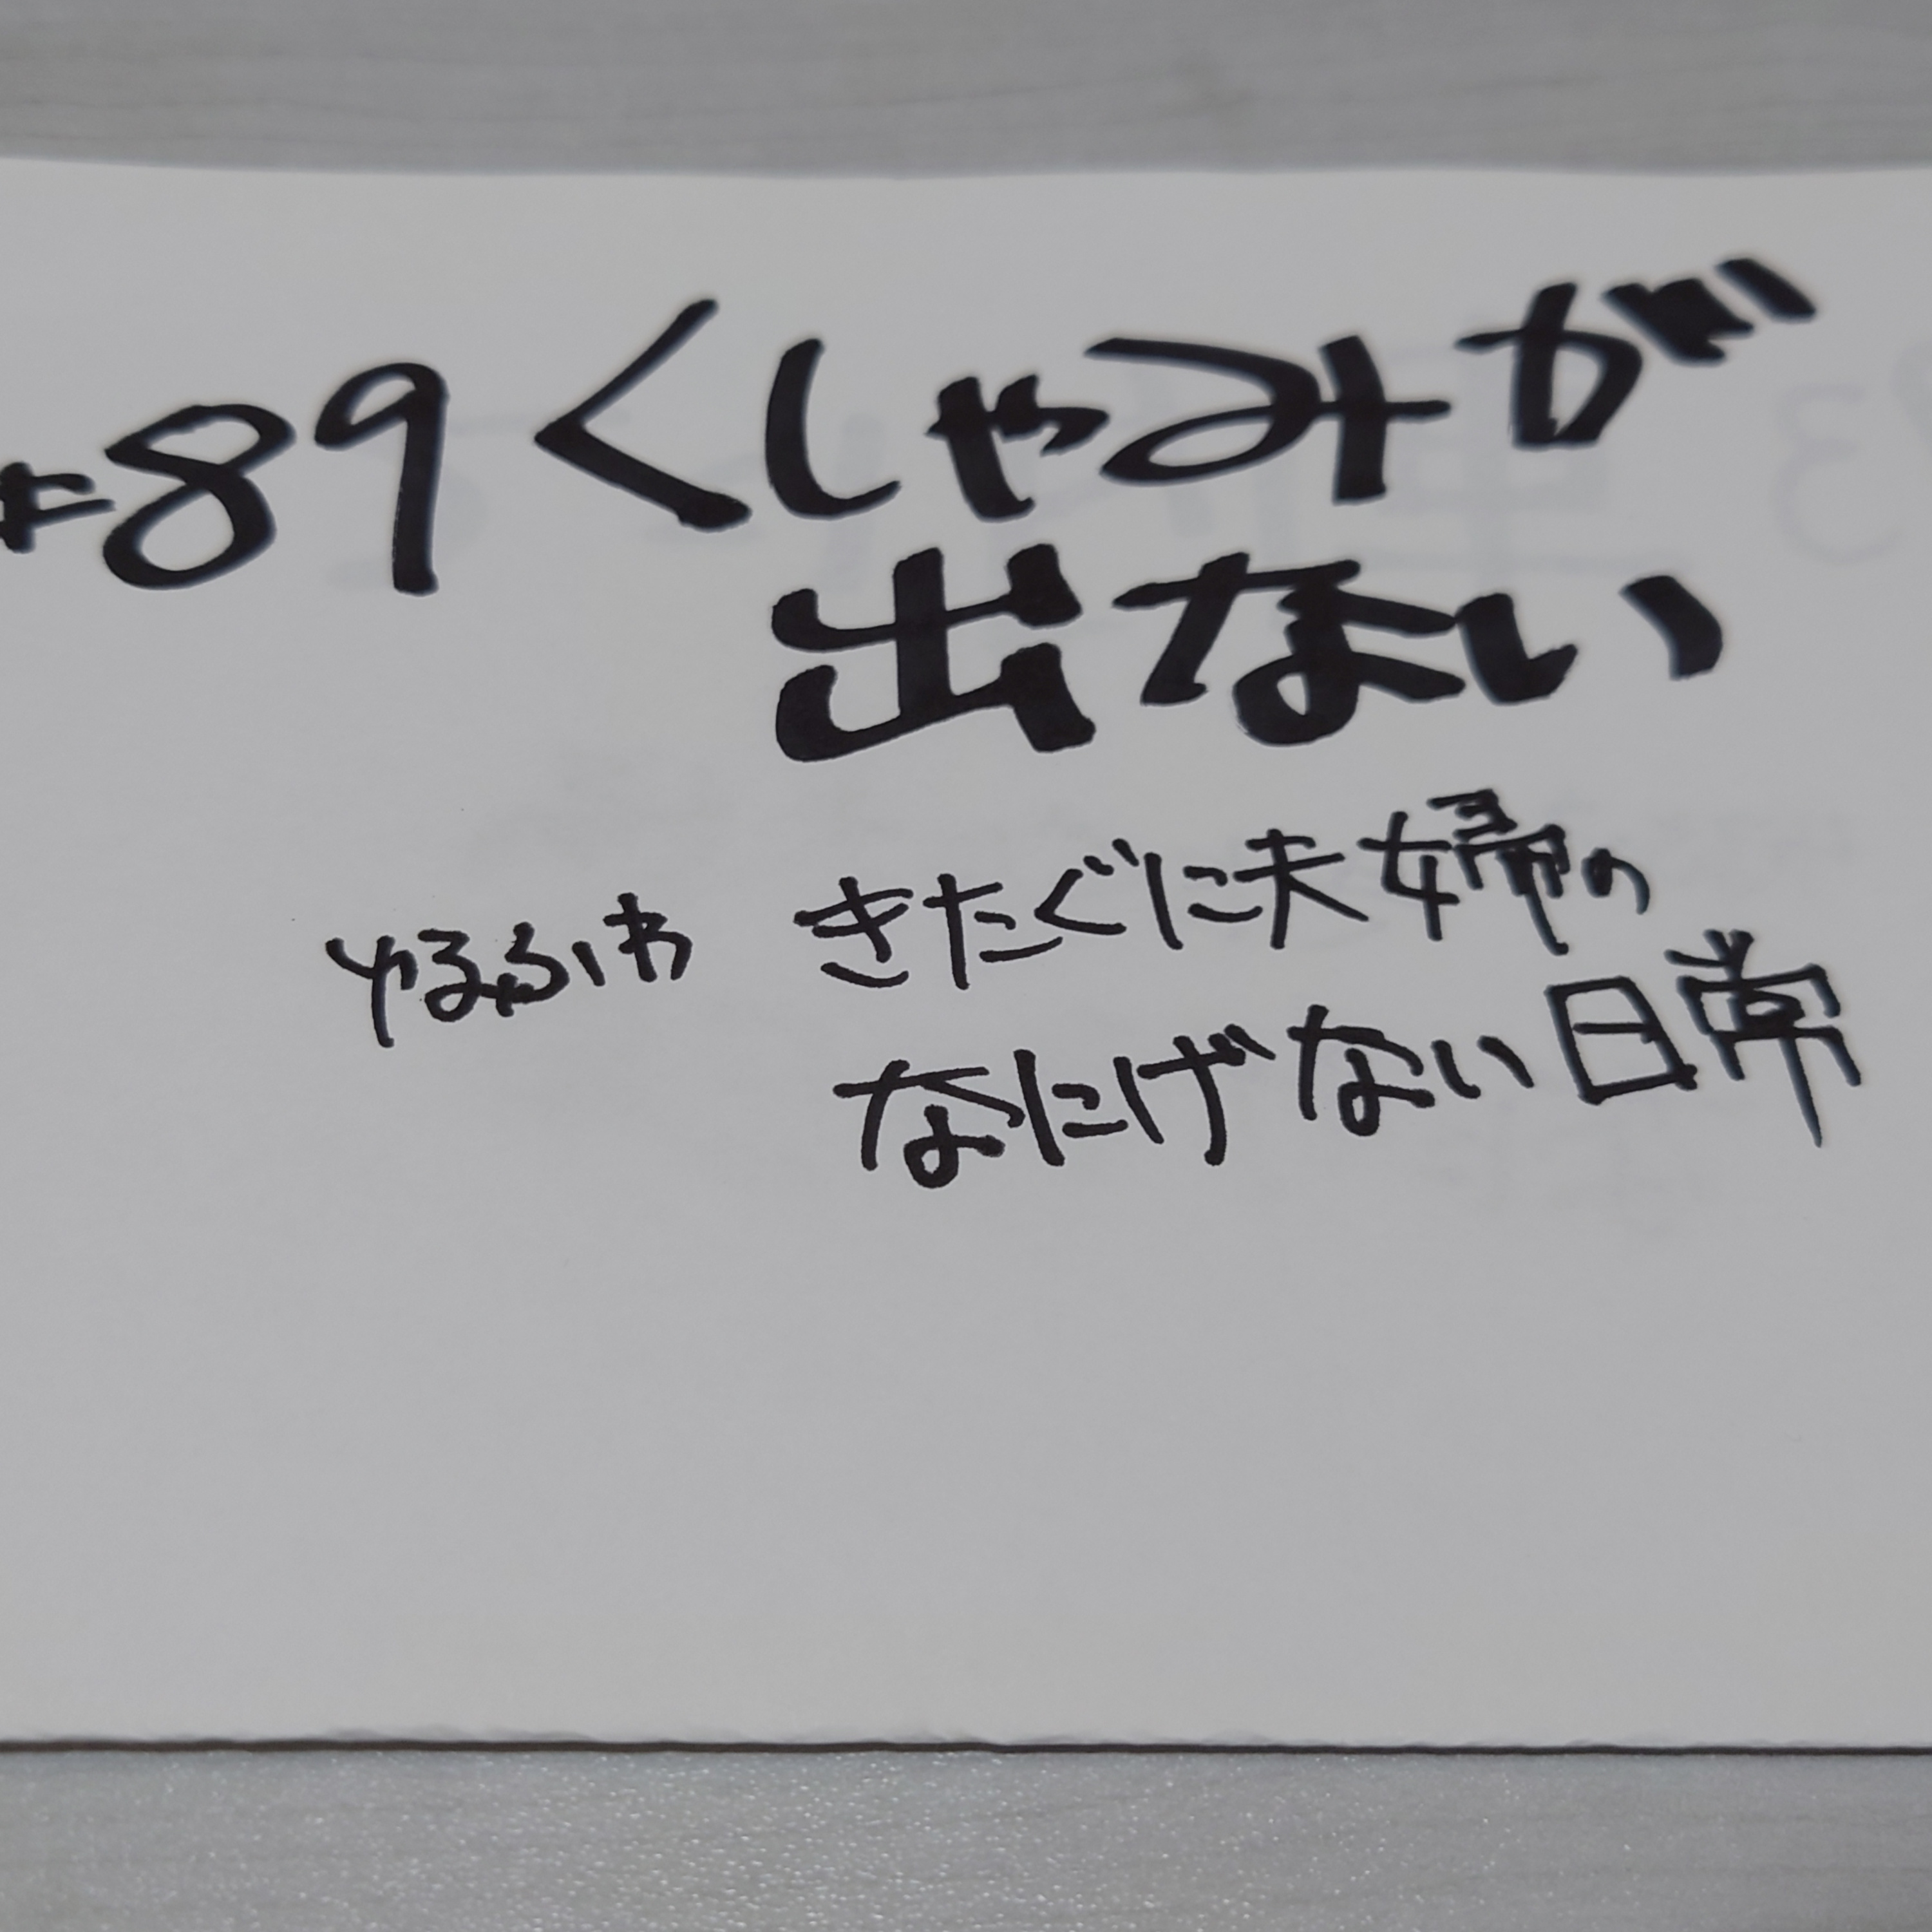 #89くしゃみが
出ない
ゆるふわ きたぐに夫婦の
なにげない日常